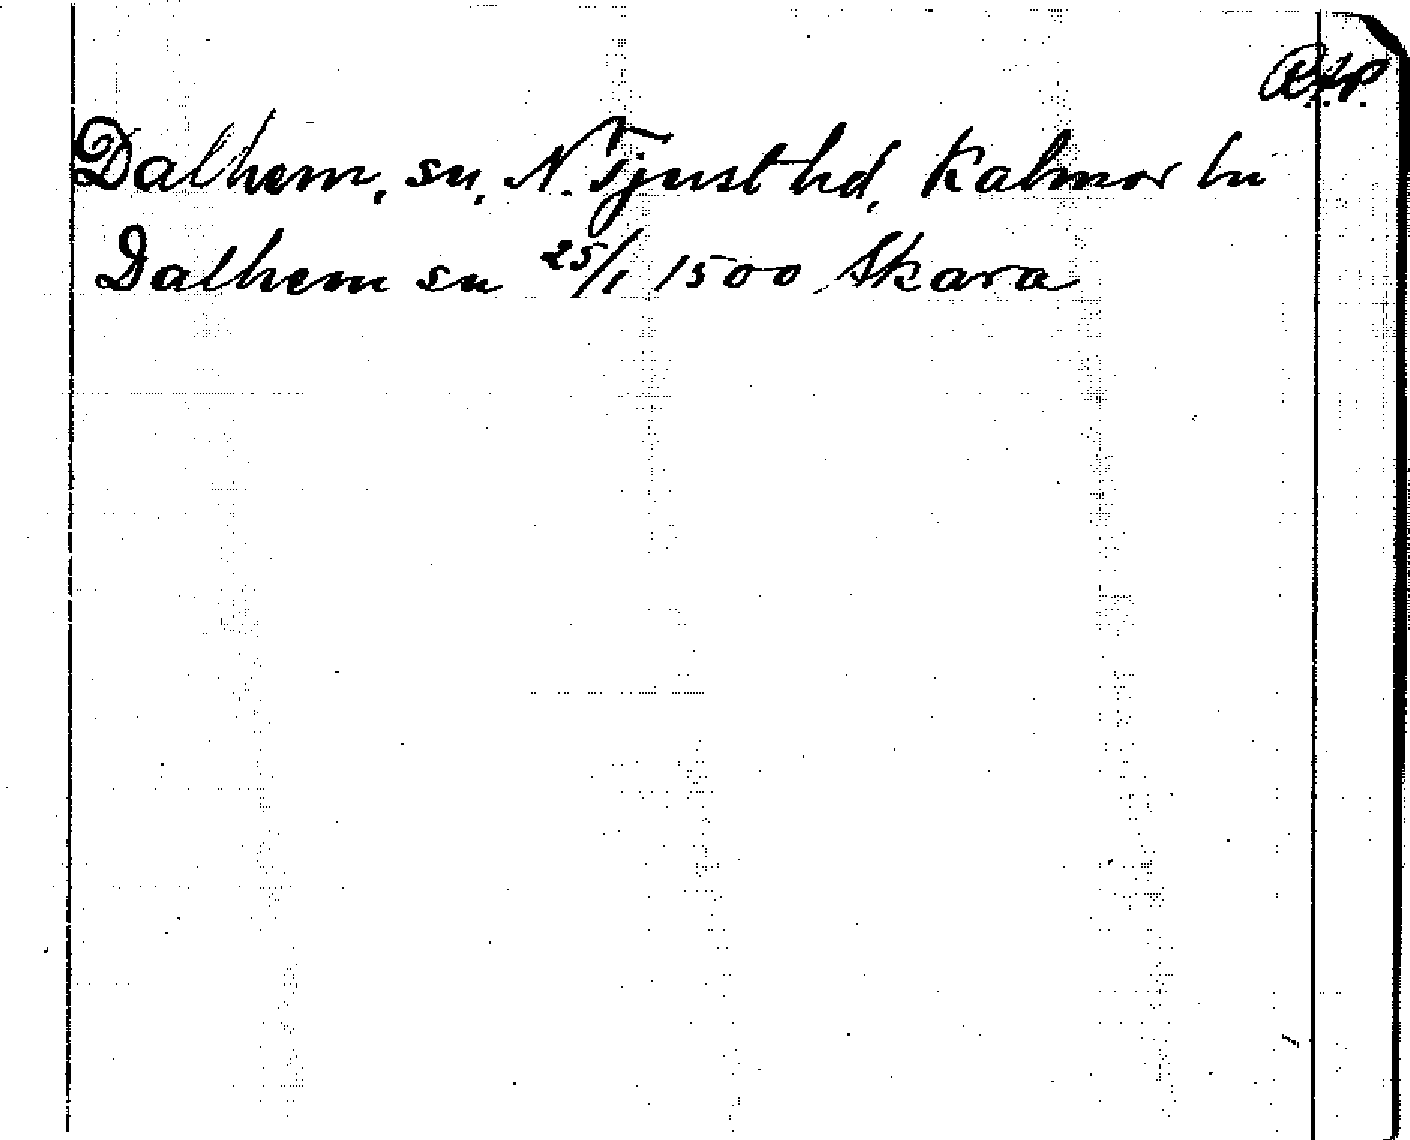 Dalhem, sn, N. Tjust hd, Kalmar län
Dalhem sn 25/1 1500 Skara